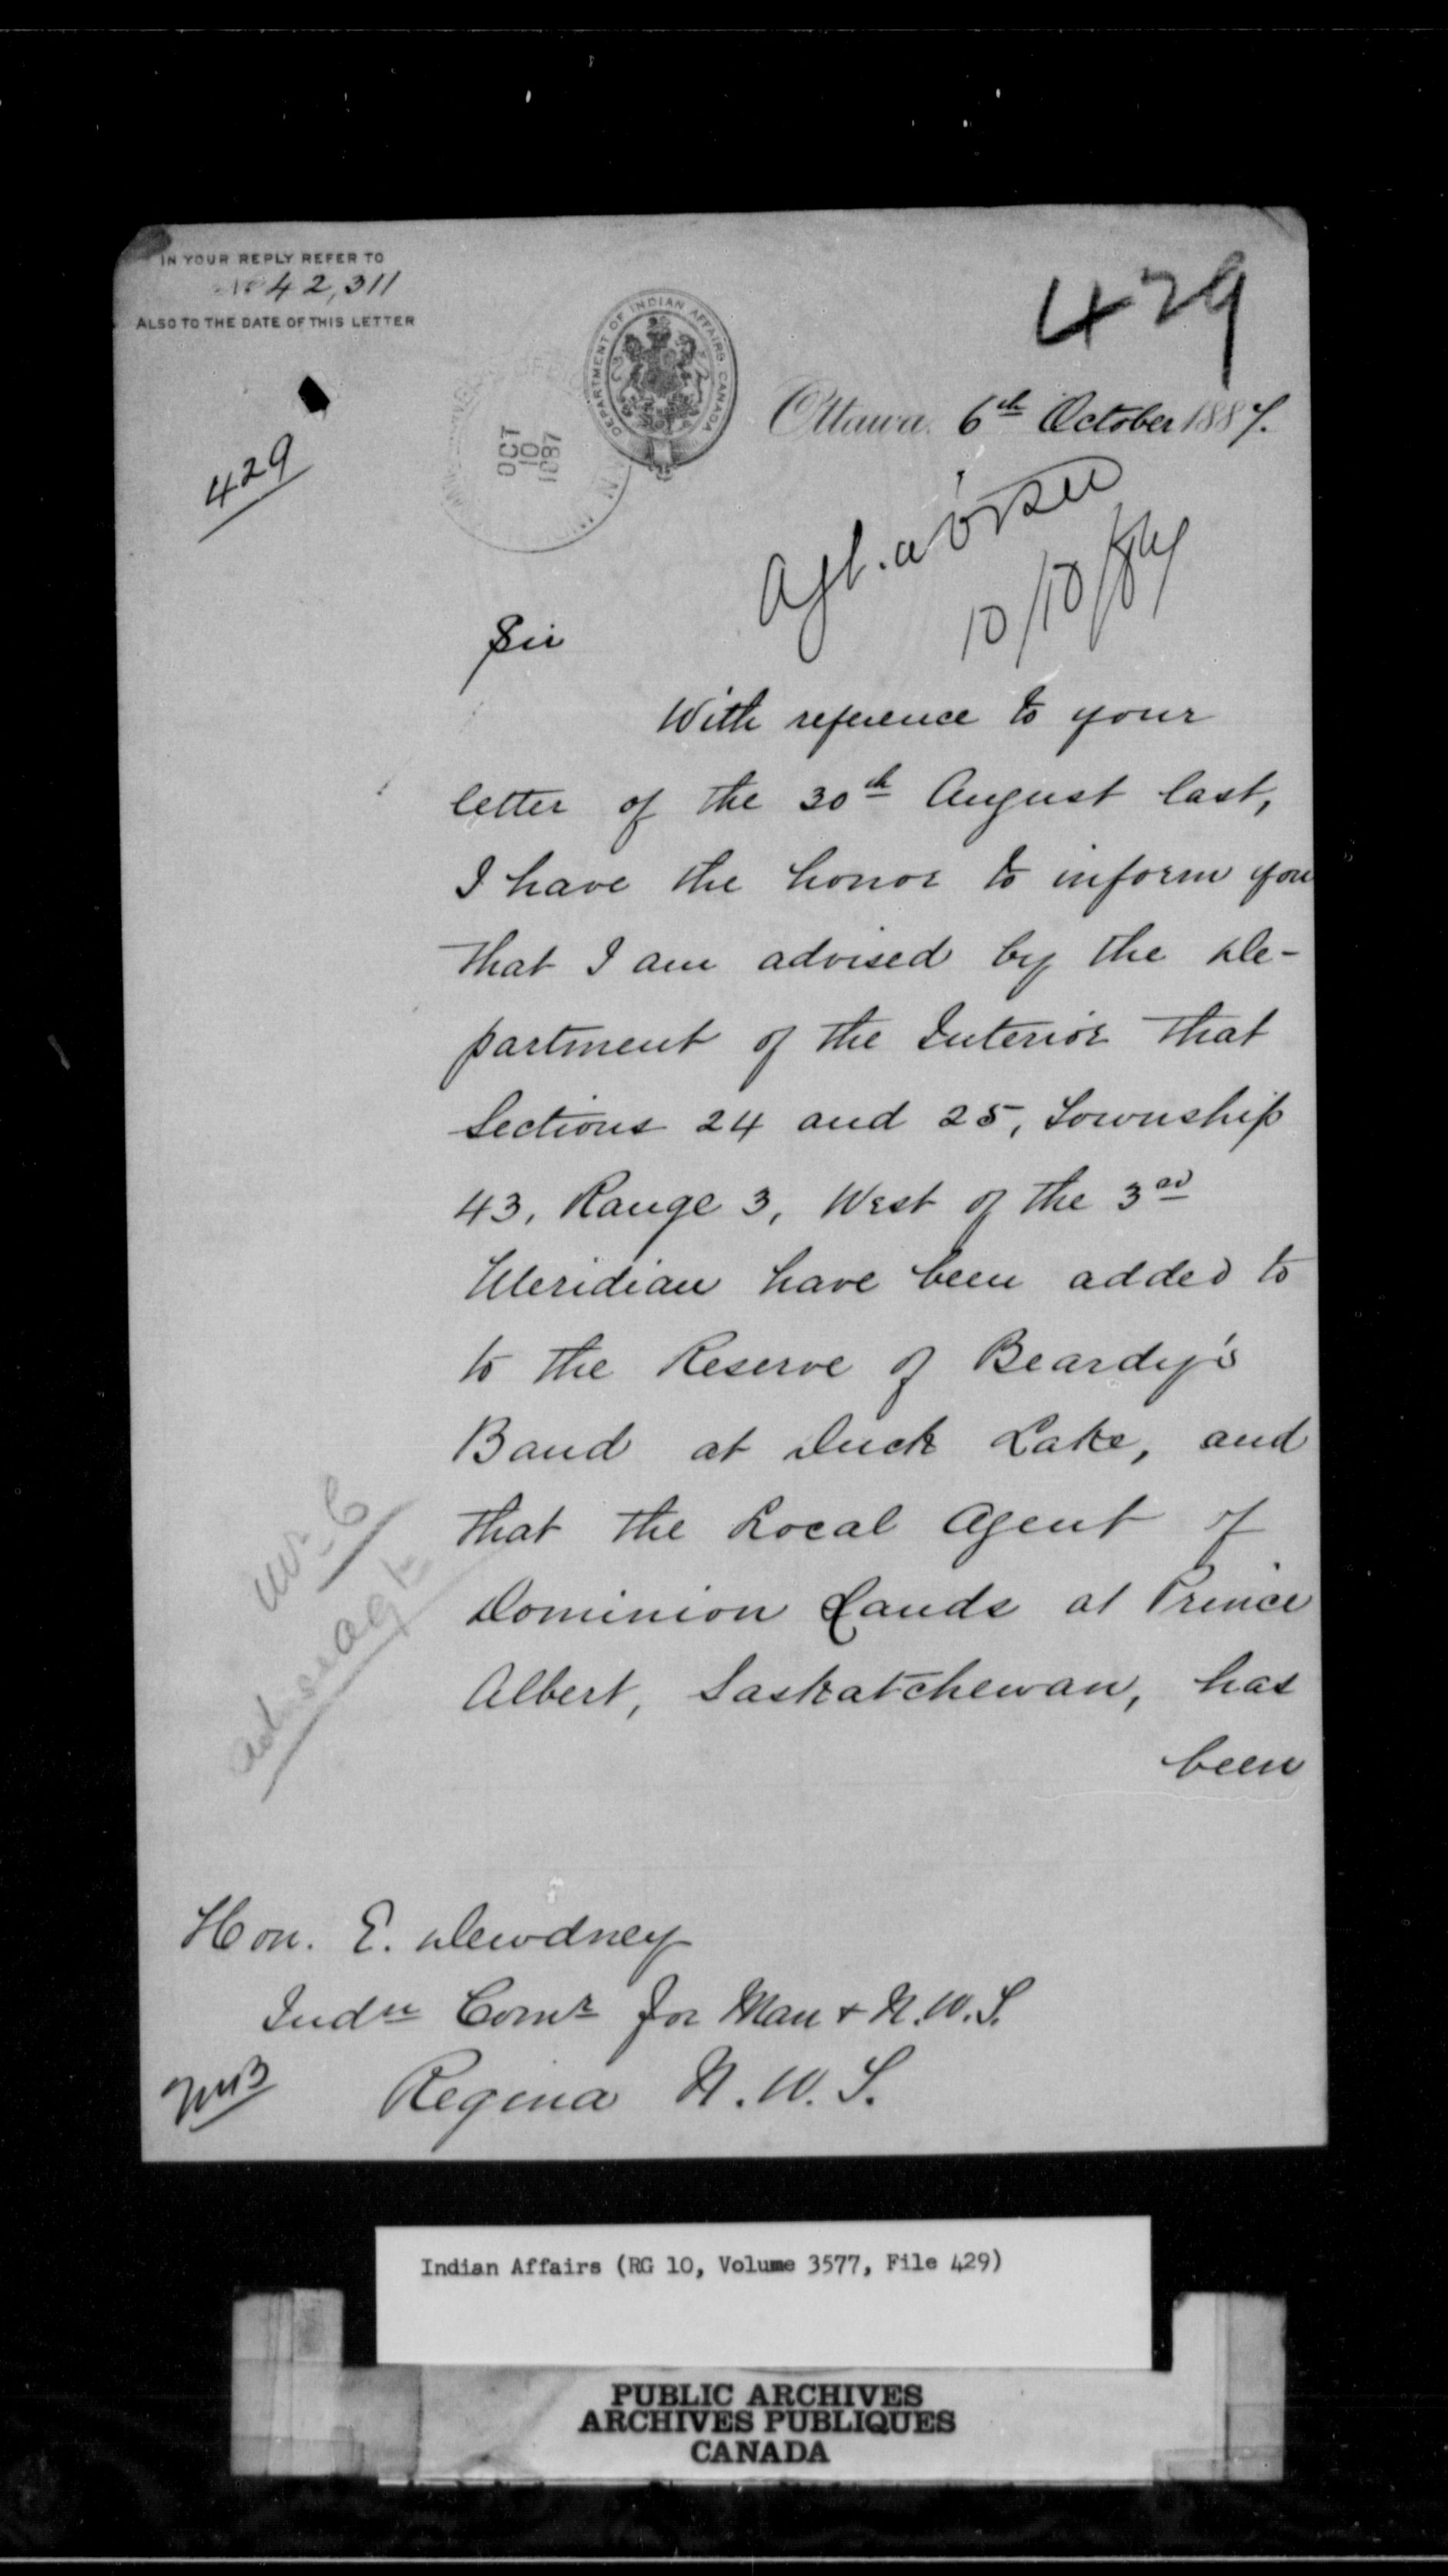 IN YOUR REPLY REFER TO
No 42,311
ALSO TO THE DATE OF THIS LETTER
429
DEPARTMENT OF INDIAN AFFAIRS CANADA
OCT
10
1887
429
Ottawa, 6th October 1887.
Agt. advised
10/10/87
Sir
With reference to your
letter of the 30th August last,
I have the honor to inform you
that I am advised by the De-
partment of the Interior that
Sections 24 and 25, Township
43, Range 3, West of the 3rd
Meridian have been added to
to the Reserve of Beardy's
Band at Duck Lake, and
that the Local Agent of
Dominion Lands at Prince
Albert, Saskatchewan, has
been
Mr. C
Hon. E. Dewdney
Indn Comr for Man & N.W.T.
Regina N.W.T.
Indian Affairs (RG 10, Volume 3577, File 429)
PUBLIC ARCHIVES
ARCHIVES PUBLIQUES
CANADA